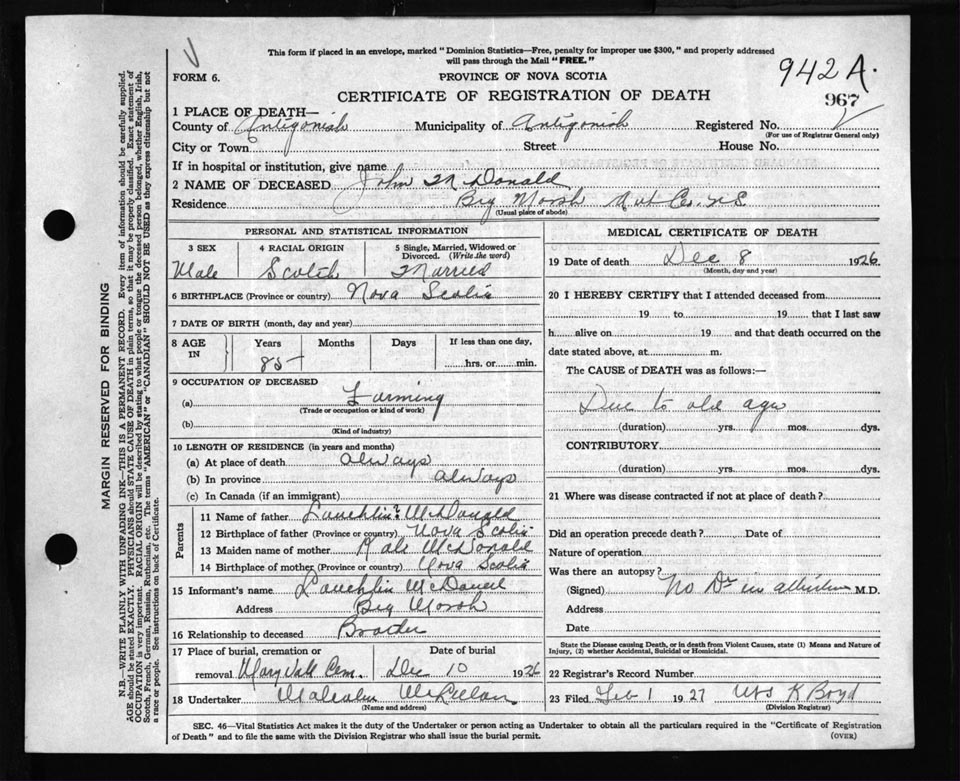 This form if placed in an envelope, marked "Dominion Statistics—Free, penalty for improper use $300," and properly addressed
will pass through the Mail "FREE."
FORM 6.
PROVINCE OF NOVA SCOTIA
942 A.
967
CERTIFICATE OF REGISTRATION OF DEATH
1 PLACE OF DEATH—
County of Antigonish Municipality of Antigonish Registered No.
(For use of Registrar General only)
City or Town Street House No.
If in hospital or institution, give name
2 NAME OF DECEASED John McDonald
Residence Big Marsh Ant Co. N S
(Usual place of abode)
PERSONAL AND STATISTICAL INFORMATION
3 SEX 4 RACIAL ORIGIN 5 Single, Married, Widowed or Divorced. (Write the word)
Male Scotch Married
6 BIRTHPLACE (Province or country) Nova Scotia
7 DATE OF BIRTH (month, day and year)
8 AGE IN Years Months Days If less than one day,
85 hrs. or min.
9 OCCUPATION OF DECEASED
(a) Farming
(Trade or occupation or kind of work)
(b)
(Kind of industry)
10 LENGTH OF RESIDENCE (in years and months)
(a) At place of death always
(b) In province always
(c) In Canada (if an immigrant)
Parents
11 Name of father Lauchlin McDonald
12 Birthplace of father (Province or country) Nova Scotia
13 Maiden name of mother Kate McDonald
14 Birthplace of mother (Province or country) Nova Scotia
15 Informant's name Lauchlin McDonald
Address Big Marsh
16 Relationship to deceased Brother
17 Place of burial, cremation or removal Date of burial
Maryvale Cem. Dec 10 1926
18 Undertaker Malcolm
(Name and address)
MEDICAL CERTIFICATE OF DEATH
19 Date of death Dec 8 1926
(Month, day and year)
20 I HEREBY CERTIFY that I attended deceased from
19 to 19 that I last saw
h alive on 19 and that death occurred on the
date stated above, at m.
The CAUSE of DEATH was as follows:—
Due to old age
(duration) yrs. mos. dys.
CONTRIBUTORY
(duration) yrs. mos. dys.
21 Where was disease contracted if not at place of death?
Did an operation precede death? Date of
Nature of operation
Was there an autopsy?
(Signed) No Dr in M.D.
Address
Date
State the Disease causing Death, or in death from Violent Causes, state (1) Means and Nature of
Injury, (2) whether Accidental, Suicidal or Homicidal.
22 Registrar's Record Number
23 Filed Feb 1 1927 K Boyd
(Division Registrar)
SEC. 46—Vital Statistics Act makes it the duty of the Undertaker or person acting as Undertaker to obtain all the particulars required in the "Certificate of Registration
of Death" and to file the same with the Division Registrar who shall issue the burial permit.
(OVER)
MARGIN RESERVED FOR BINDING
N.B.—WRITE PLAINLY WITH UNFADING INK—THIS IS A PERMANENT RECORD. Every item of information should be carefully supplied.
AGE should be stated EXACTLY. PHYSICIANS should STATE CAUSE OF DEATH in plain terms, so that it may be properly classified. Exact statement of
OCCUPATION is very important. RACIAL ORIGIN will be described by stating to what people or tongue the deceased person belonged, whether English, Irish,
Scotch, French, German, Russian, Ruthenian, etc. The terms "AMERICAN" or "CANADIAN" SHOULD NOT BE USED as they express citizenship but not
a race or people. See instructions on back of Certificate.